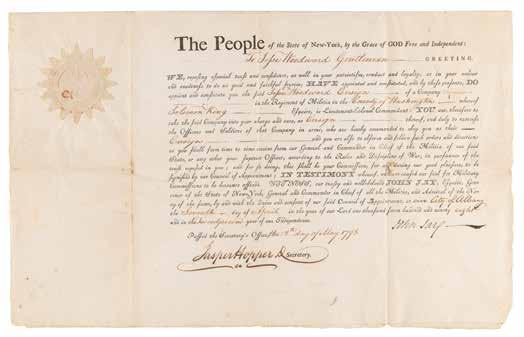 The People of the State of New-York, by the Grace of GOD Free and Independent:
To Jesse Woodward Gentleman GREETING.
WE, reposing especial trust and confidence, as well in your patriotism, conduct and loyalty, as in your valour
and readiness to do us good and faithful service; HAVE appointed and constituted, and by these presents, DO
appoint and constitute you the said Jesse Woodward Ensign of a Company
in the Regiment of Militia in the County of Washington whereof
Solomon King Esquire, is Lieutenant-Colonel Commandant; YOU are therefore to
take the said Company into your charge and care, as Ensign thereof, and duly to exercise
the Officers and Soldiers of that Company in arms, who are hereby commanded to obey you as their
Ensign and you are also to observe and follow such orders and directions
as you shall from time to time receive from our General and Commander in Chief of the Militia of our said
State, or any other your Superior Officer, according to the Rules and Discipline of War, in pursuance of the
trust reposed in you; and for so doing, this shall be your Commission, for and during our good pleasure, to be
signified by our Council of Appointment. IN TESTIMONY whereof, we have caused our Seal for Military
Commissions to be hereunto affixed. WITNESS, our trusty and well-beloved JOHN JAY, Esquire, Governor
of our State of New-York, General and Commander in Chief of all the Militia, and Admiral of the Navy
of the same, by and with the advice and consent of our said Council of Appointment, at our City of Albany
the Seventh day of April in the year of our Lord one thousand seven hundred and ninety eight
and in the twenty second year of our Independence.
Passed the Secretary's Office, the day of May 1798
John Jay
Jasper Hopper D Secretary.